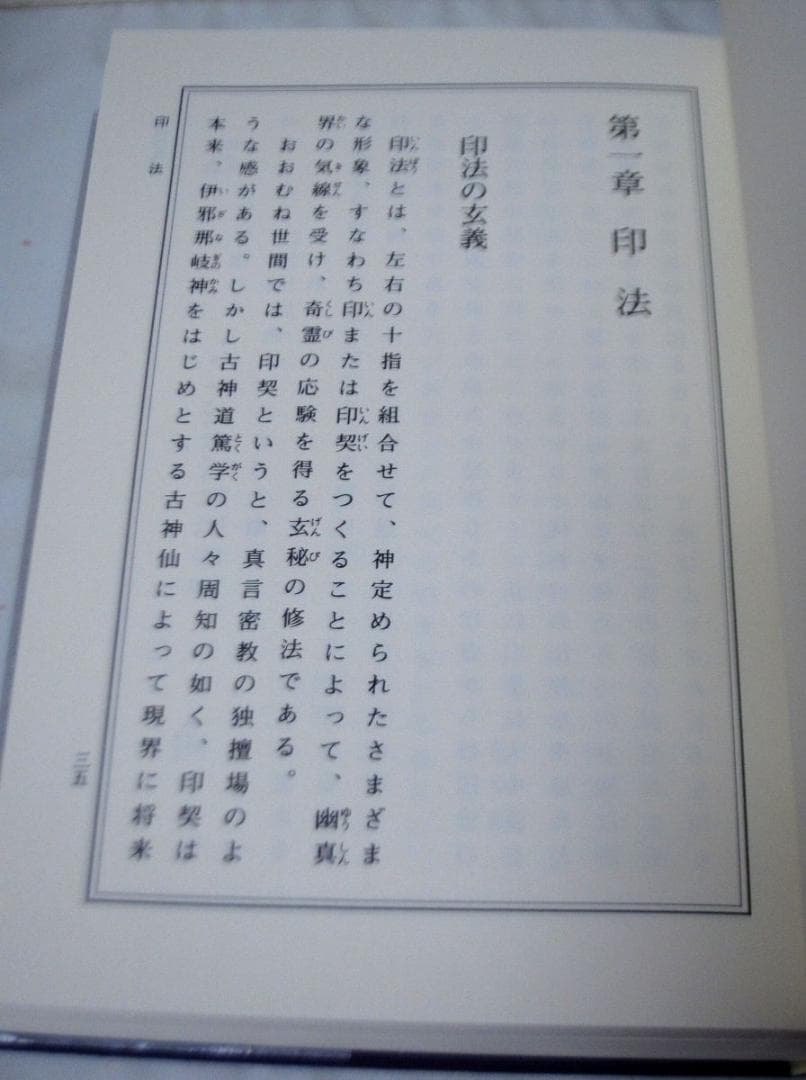 第一章　印　法
印法の玄義
印法とは、左右の十指を組合せて、神定められたさまざま
な形象、すなわち印または印契をつくることによって、幽真
界の気線を受け、奇霊の応験を得る玄秘の修法である。
おおむね世間では、印契というと、真言密教の独擅場のよ
うな感がある。しかし古神道篤学の人々周知の如く、印契は
本来、伊邪那岐神をはじめとする古神仙によって現界に将来
印　法
三五